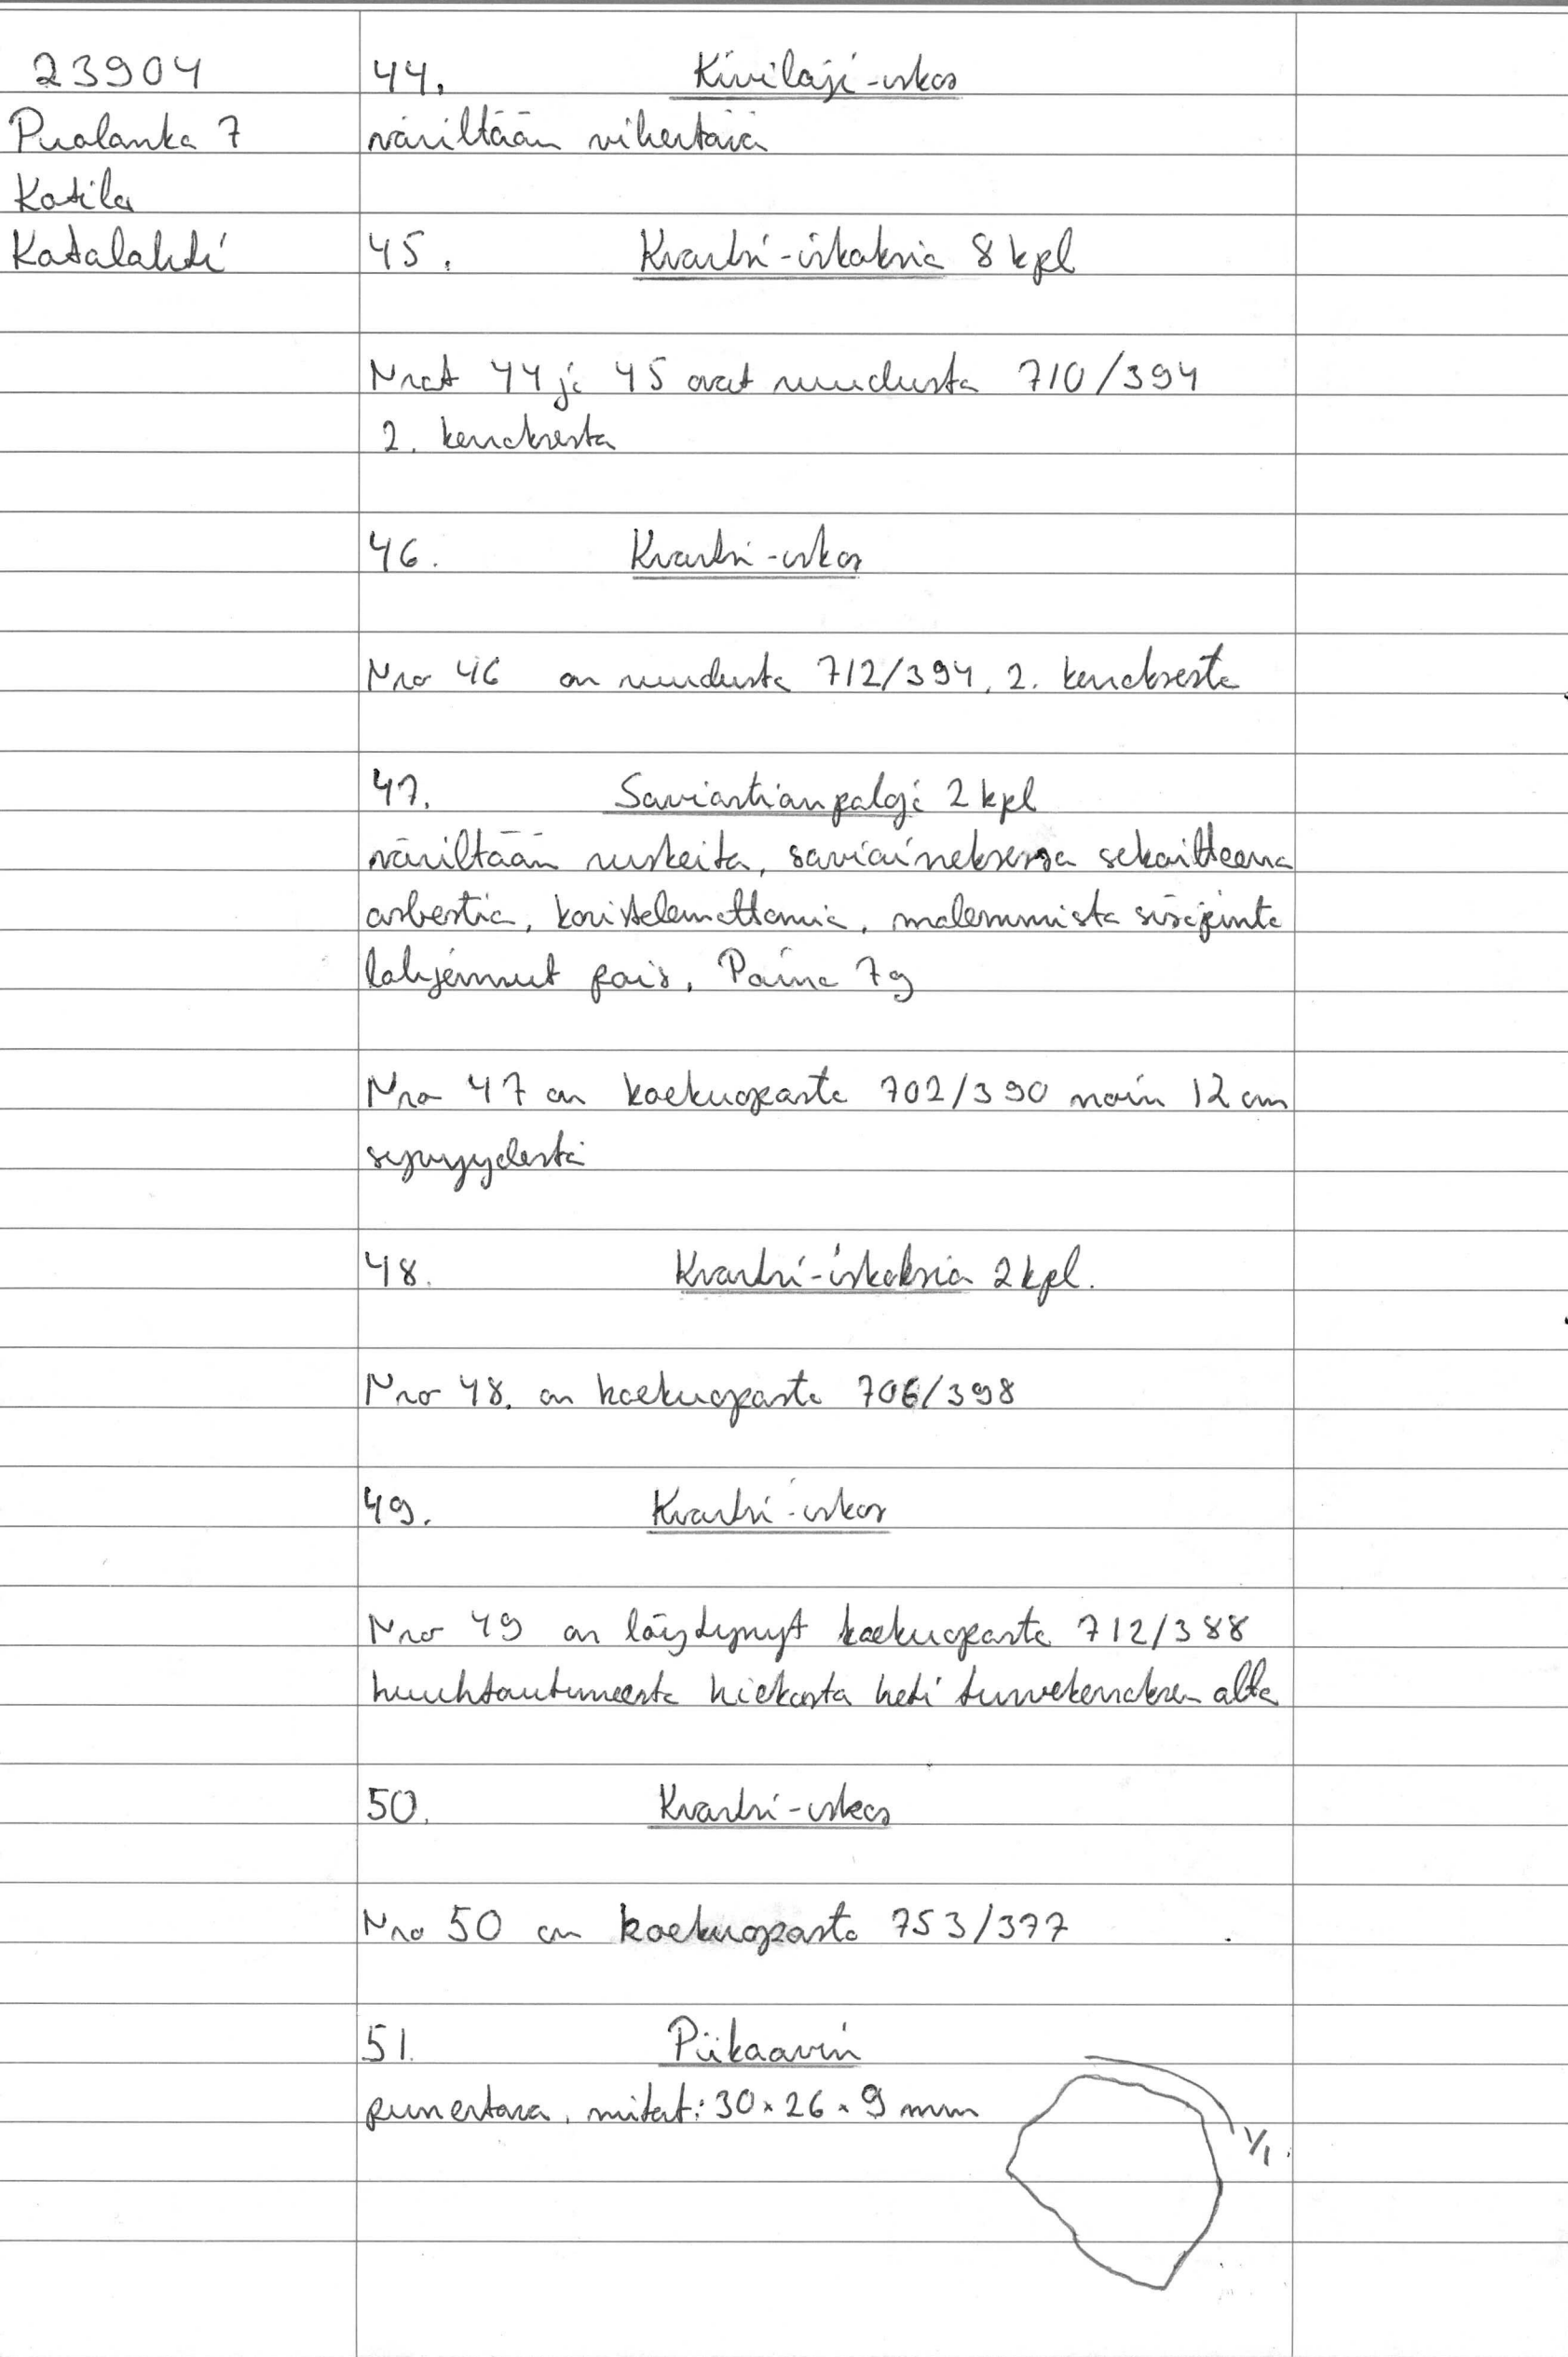 23904
Puolanka 7
Kotila
Katalahti
44. Kivilaji-iskos
väriltään vihertävä
45. Kvartsi-iskoksia 8 kpl
Nrot 44 ja 45 ovat ruudusta 710/394
2. kerroksesta
46. Kvartsi-iskos
Nro 46 on ruudusta 712/394, 2. kerroksesta
47. Saviastianpaloja 2 kpl
väriltään ruskeita, saviaineksessa sekoitteena
asbestia, koristelemattomia, molemmista sisäpinta
lohjennut pois. Paino 7 g
Nro 47 on koekuopasta 702/390 noin 12 cm
syvyydestä
48. Kvartsi-iskoksia 2 kpl.
Nro 48. on koekuopasta 706/398
49. Kvartsi-iskos
Nro 49 on löydynyt koekuopasta 712/388
huuhtoutuneesta hiekasta heti turvekerroksen alta
50. Kvartsi-iskos
Nro 50 on koekuopasta 753/377
51. Piikaavin
punertava, mitat: 30 × 26 × 9 mm
1/1